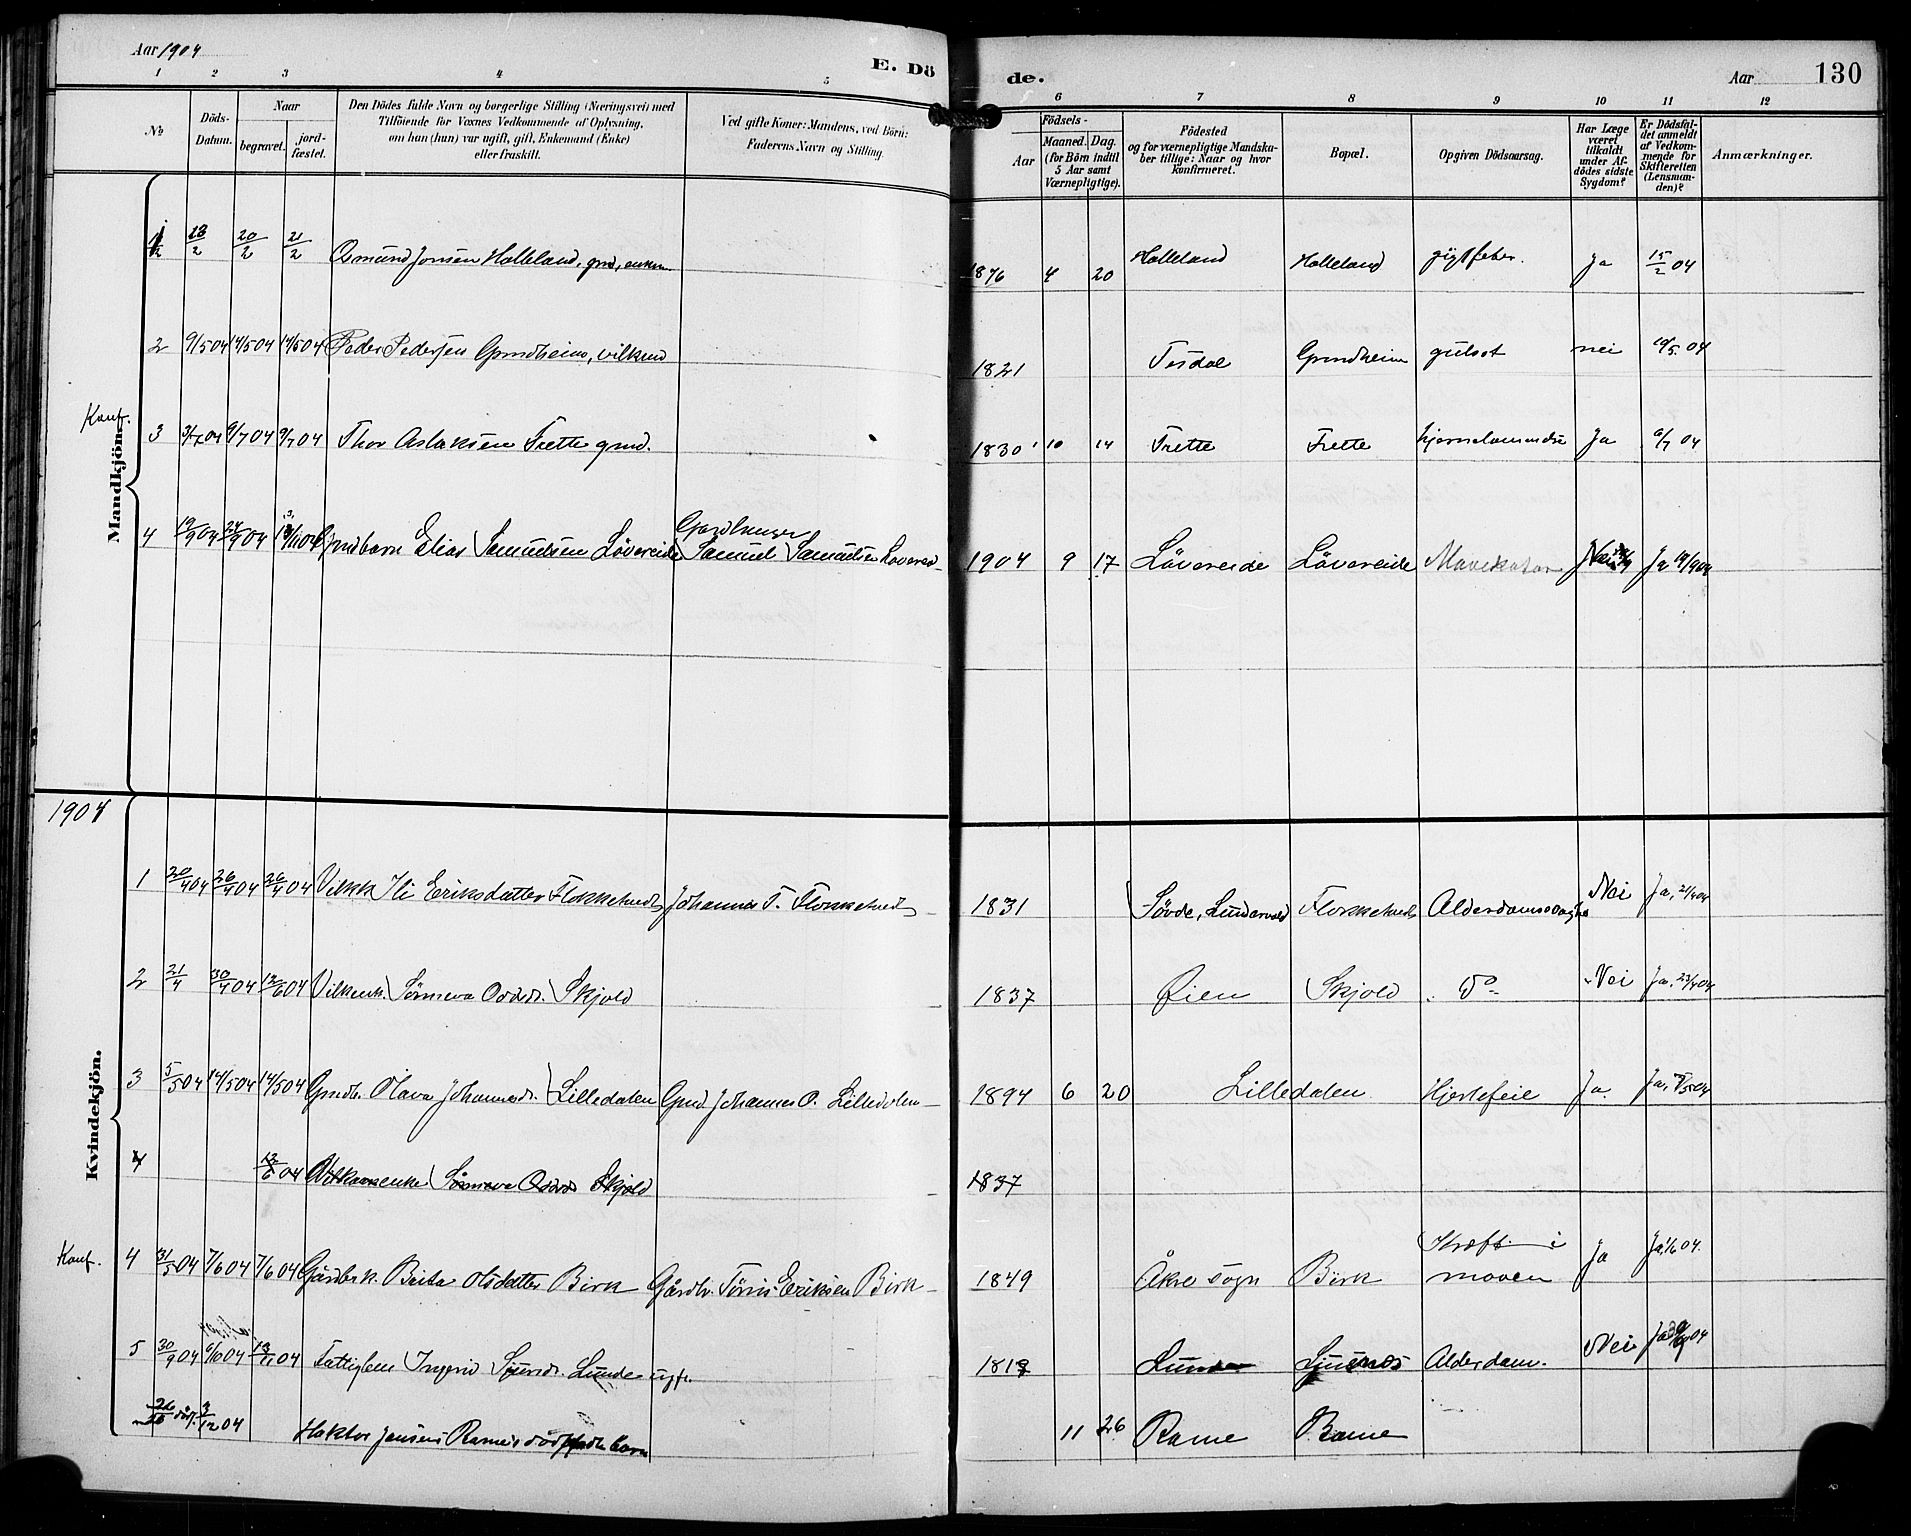 Aar 1904
E. Dö
de.
Aar
130
1 2 3 4 5
6 7 8 9 10 11 12
No
Döds-Datum.
Naar
begravet.
jord-fæstet.
Den Dödes fulde Navn og borgerlige Stilling (Næringsvei) med
Tilföiende for Voxnes Vedkommende af Oplysning,
om han (hun) var ugift, gift, Enkemand (Enke)
eller fraskilt.
Ved gifte Koner: Mandens, ved Börn:
Faderens Navn og Stilling.
Födsels-
Aar
Maaned. Dag.
(for Börn indtil
5 Aar samt
Værnepligtige).
Födested
og for værnepligtige Mandska-
ber tillige: Naar og hvor
konfirmeret.
Bopæl.
Opgiven Dödsaarsag.
Har Læge
været
tilkaldt
under Af-
dödes sidste
Sygdom?
Er Dödsfal-
det anmeldt
af Vedkom-
mende for
Skifteretten
(Lensman-
den)?
Anmærkninger.
Mandkjön.
20/2 21/2 Osmund Jonsen Halleland, gmd, enkem 1876 4 20 Halleland Halleland gigtfeber. Ja 15/2 04
2 9/5 04 14/5 04 14/5 04 Peder Pedersen Grindheim, vilkmd 1821 Tesdal Grindheim gulsot nei 10/5 04
Konf.
3 3/7 04 9/7 04 9/7 04 Thor Aslaksen Frette gmd. 1830 10 14 Frette Frette Ja 6/7 04
Gaardbruger
4 19/9 04 24/9 04 Gmdbarn Elias Samuelsen Løvereide Samuel Samuelsen Løvereid 1904 9 17 Løvereide Løvereide Mavekatar Nei Ja 19/9 04
1904
Kvindekjön.
1 20/4 04 26/4 04 26/4 04 Vilkk Ili Eriksdatter Flokketvedt Johannes T. Flokketvedt 1831 Søvde, Lundervold Flokketvedt Nei Ja, 21/4 04
2 21/4 30/4 04 12/6 04 Vilkenk. Sønneva Oddsd. Skjold 1837 Øien Skjold Do Nei Ja, 23/4 04
3 5/5 04 14/5 04 14/5 04 Gmdb. Olava Johannesd. Lilledalen Gmd Johannes O. Lilledalen 1894 6 20 Lilledalen Hjertefeil Ja Ja,
4 12/6 04 Vilkaarsenke Sønneva Oddsd Skjold 1837
Konf. 4 31/5 04 7/6 04 7/6 04 Gårdbk. Brita Olsdatter Birk Gårdbr. Tørris Eriksen Birk 1849 Åkre sogn Birk Kræft i maven Ja Ja 1/6 04.
5 30/9 04 6/10 04 13/11 04 Fattiglem Ingerid Sjursd. Lunde ugft. Lunde Alderdom. Nei Ja
26/11 3/12 04 Jensens Rames dødfødte barn 11 26 Rame Rame